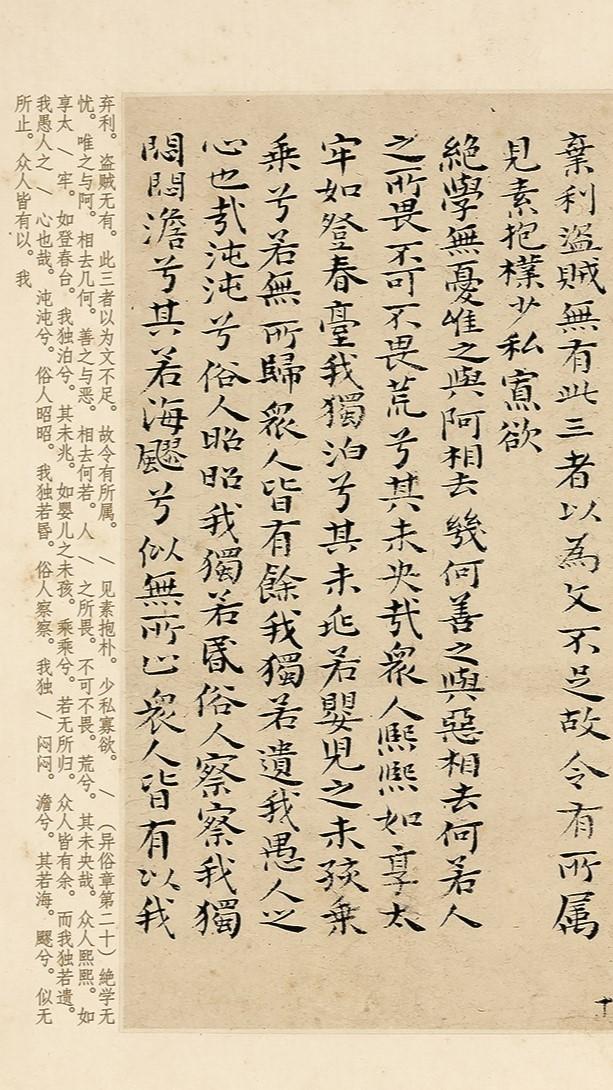 棄利盜賊無有此三者以為文不足故令有所属
見素抱樸少私寡欲
絶學無憂唯之與阿相去幾何善之與惡相去何若人
之所畏不可不畏荒兮其未央哉衆人熙熙如享太
牢如登春臺我獨泊兮其未兆若嬰児之未孩乗
乗兮若無所歸衆人皆有餘我獨若遺我愚人之
心也哉沌沌兮俗人昭昭我獨若昬俗人察察我獨
悶悶澹兮其若海飂兮似無所止衆人皆有以我
十
弃利。盗贼无有。此三者以为文不足。故令有所属。 / 见素抱朴。少私寡欲。 / （异俗章第二十）绝学无
忧。唯之与阿。相去几何。善之与恶。相去何若。人 / 之所畏。不可不畏。荒兮。其未央哉。众人熙熙。如
享太 / 牢。如登春台。我独泊兮。其未兆。如婴儿之未孩。乘乘兮。若无所归。众人皆有余。而我独若遗。
我愚人之 / 心也哉。沌沌兮。俗人昭昭。我独若昏。俗人察察。我独 / 闷闷。澹兮。其若海。飂兮。似无
所止。众人皆有以。我